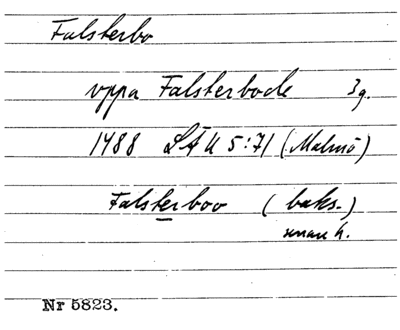 Falsterbo
vppa Falsterbode 3 g.
1488 LÄU 5:71 (Malmö)
Falsterboo (baks.)
senare h.
Nr 5823.